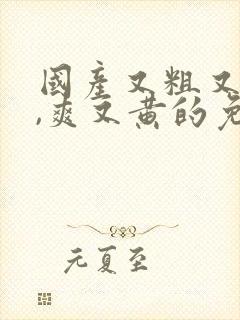 國產又粗又
,爽又黄的免
元夏至